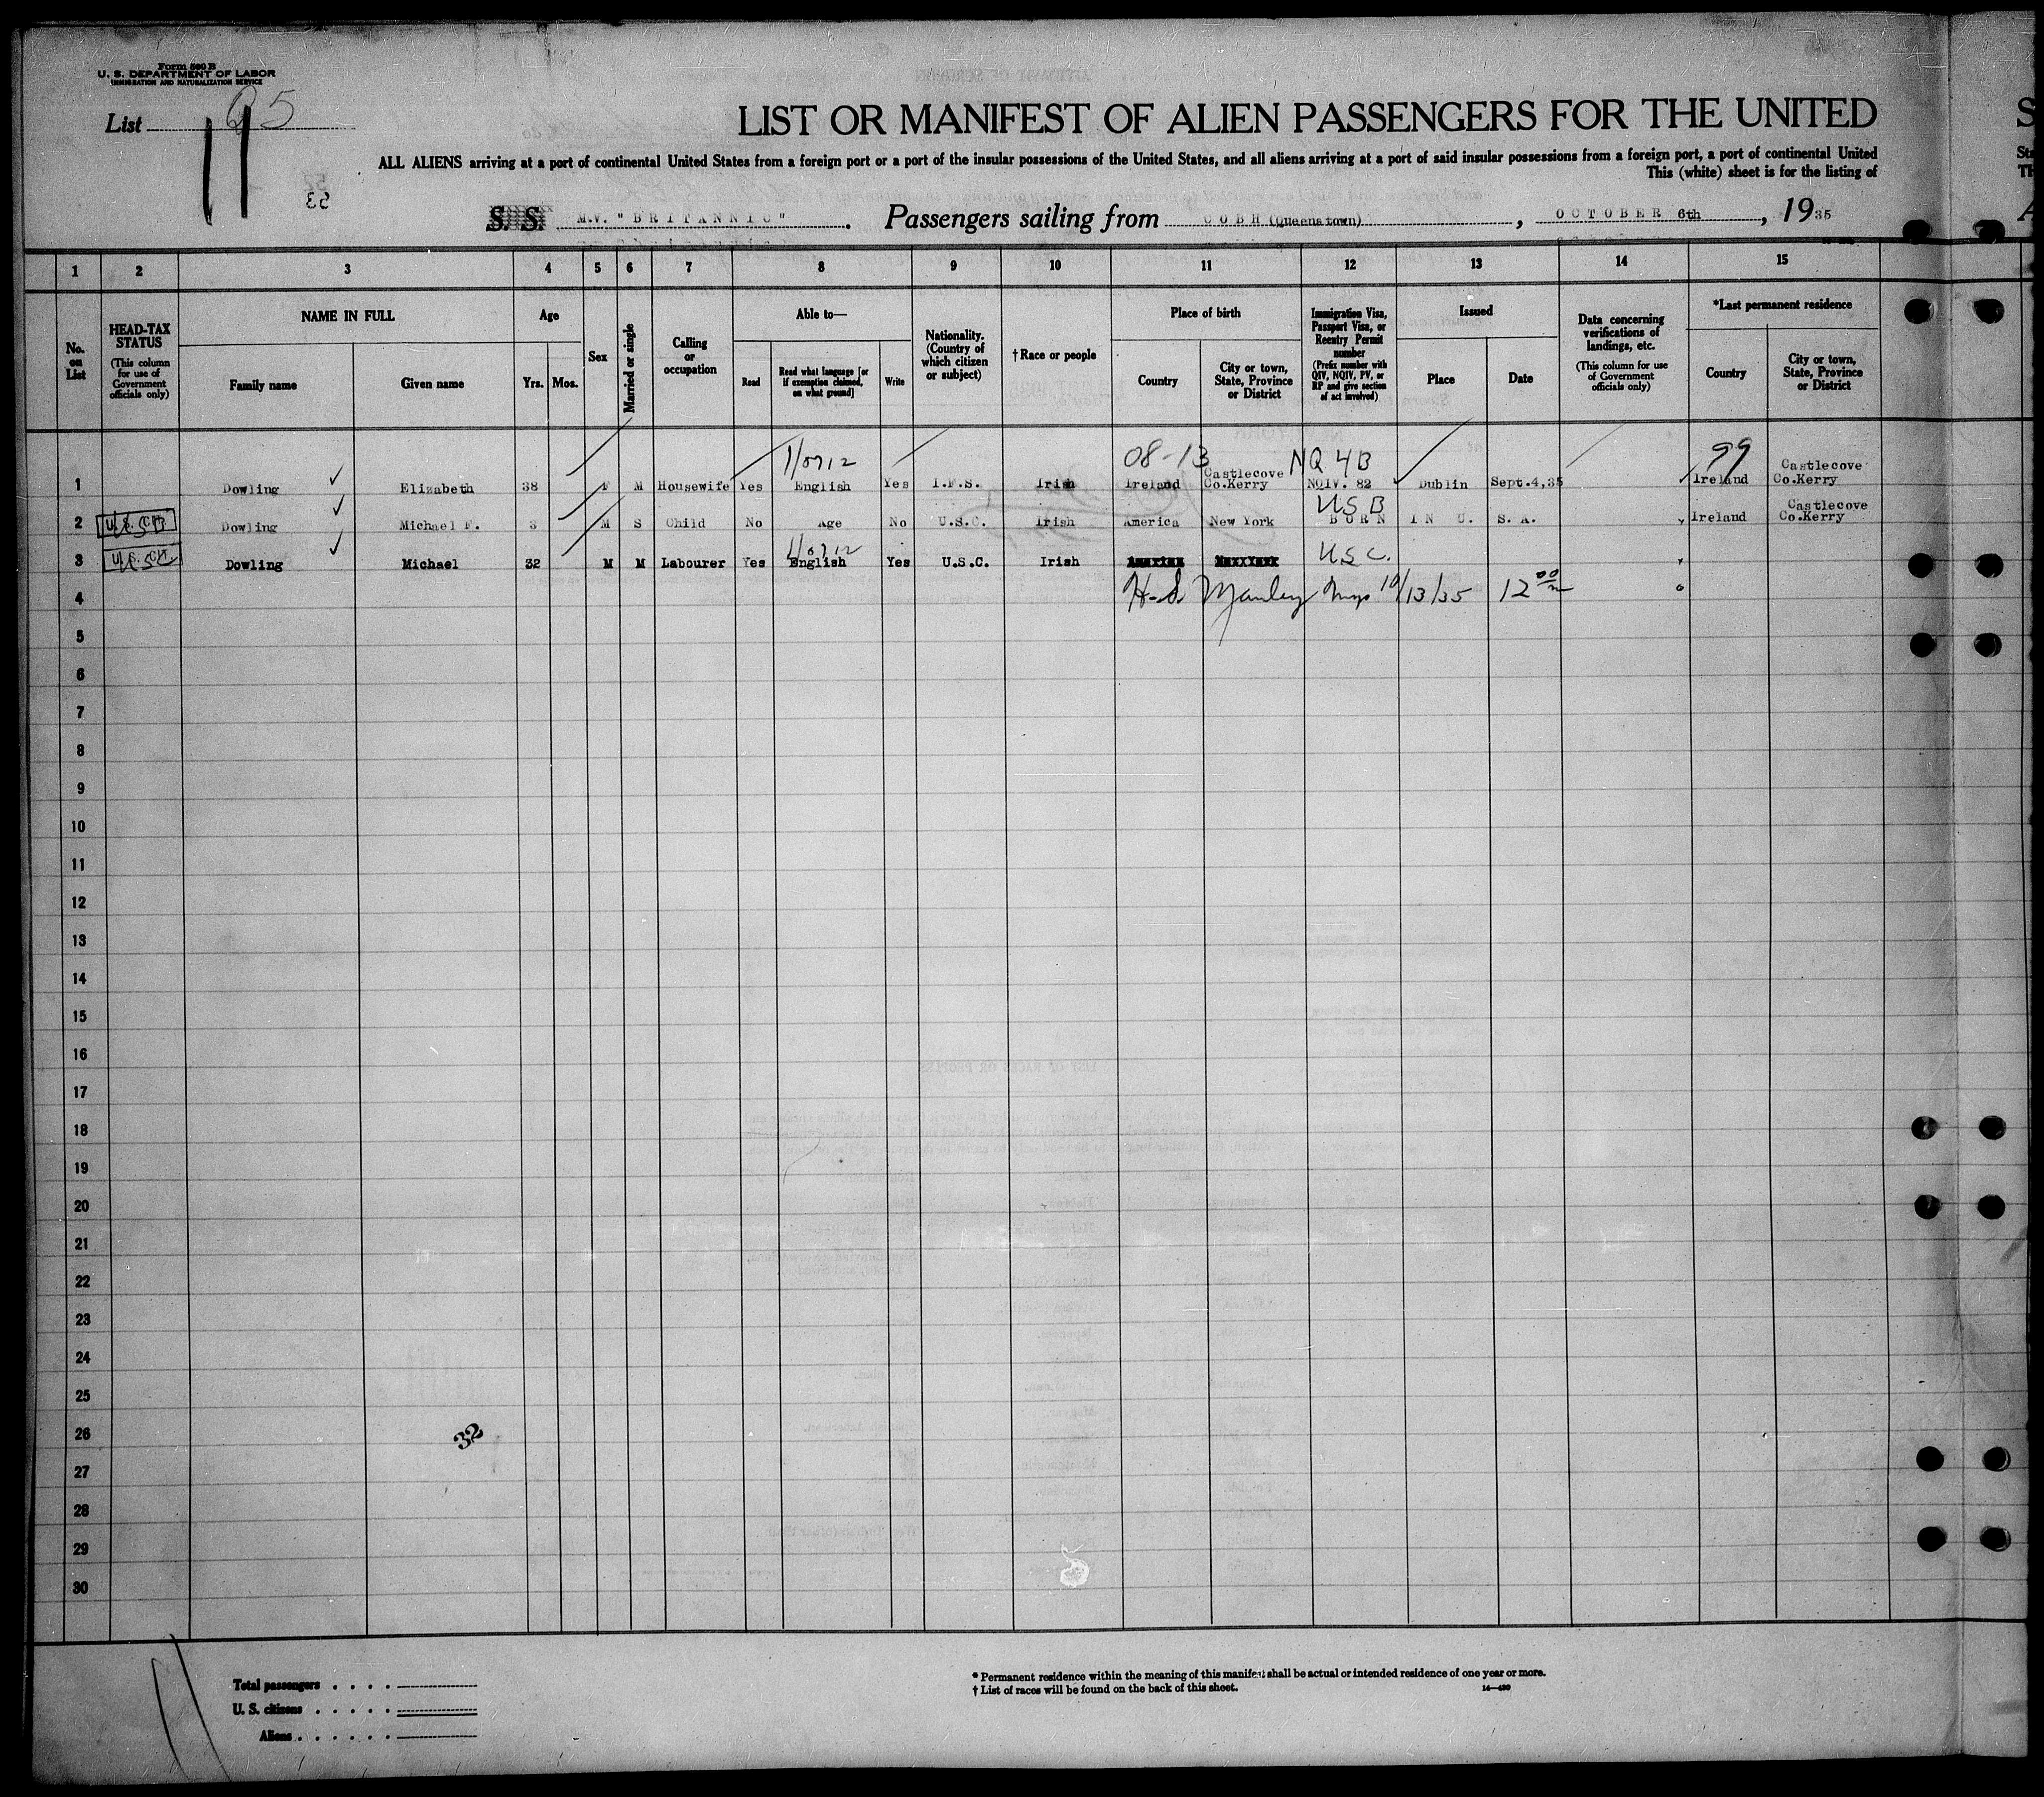 Form 500 B
U. S. DEPARTMENT OF LABOR
IMMIGRATION AND NATURALIZATION SERVICE
List 11 95
53
LIST OR MANIFEST OF ALIEN PASSENGERS FOR THE UNITED
ALL ALIENS arriving at a port of continental United States from a foreign port or a port of the insular possessions of the United States, and all aliens arriving at a port of said insular possessions from a foreign port, a port of continental United
This (white) sheet is for the listing of
S. S. M.V. "BRITANNIC". Passengers sailing from COBH (Queenstown), OCTOBER 6th, 1935
1 2 3 4 5 6 7 8 9 10 11 12 13 14 15
No. on List
HEAD-TAX STATUS (This column for use of Government officials only)
NAME IN FULL
Family name
Given name
Age
Yrs. Mos.
Sex
Married or single
Calling or occupation
Able to—
Read
Read what language [or if exemption claimed, on what ground]
Write
Nationality. (Country of which citizen or subject)
†Race or people
Place of birth
Country
City or town, State, Province or District
Immigration Visa, Passport Visa, or Reentry Permit number (Prefix number with QIV, NQIV, PV, or RP and give section of act involved)
Issued
Place
Date
Data concerning verifications of landings, etc. (This column for use of Government officials only)
*Last permanent residence
Country
City or town, State, Province or District
08-13 NQ 4B 99
1 Dowling Elizabeth 38 F M Housewife Yes English Yes I.F.S. Irish Ireland Castlecove Co.Kerry NQIV. 82 Dublin Sept.4,35 Ireland Castlecove Co.Kerry
USB
2 USB Dowling Michael F. 3 M S Child No Age No U.S.C. Irish America New York BORN IN U. S. A. Ireland Castlecove Co.Kerry
3 USC Dowling Michael 32 M M Labourer Yes English Yes U.S.C. Irish USC.
4 H. S. Manley 10/13/35 12 00
5
6
7
8
9
10
11
12
13
14
15
16
17
18
19
20
21
22
23
24
25
26
32
27
28
29
30
Total passengers . . . .
U. S. citizens . . . . .
Aliens . . . . . .
* Permanent residence within the meaning of this manifest shall be actual or intended residence of one year or more.
† List of races will be found on the back of this sheet.
14—430